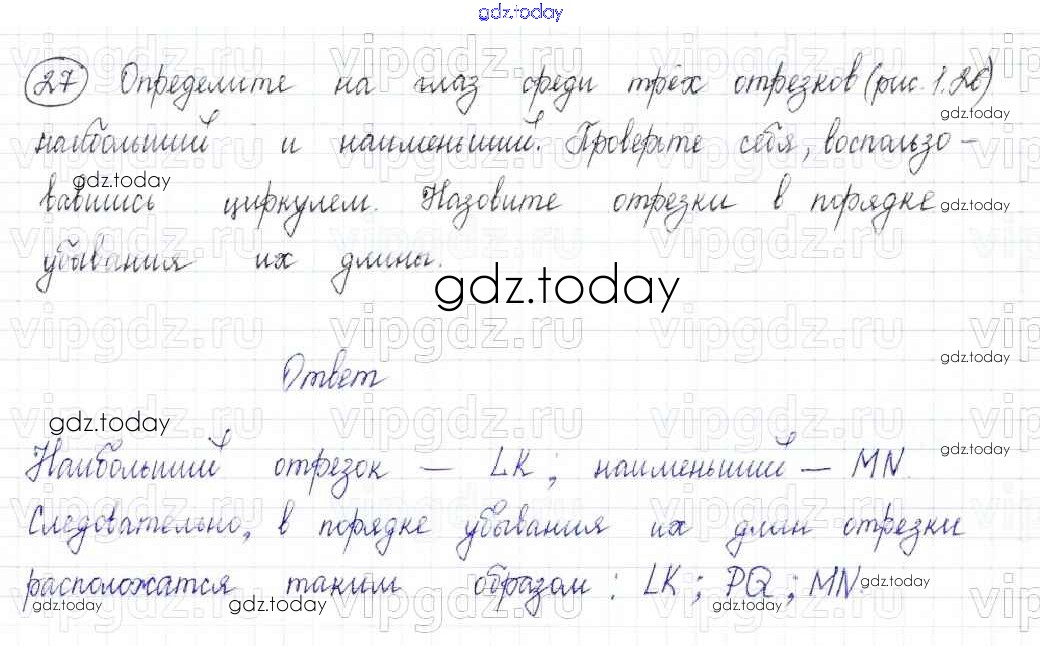 gdz.today
27 Определите на глаз среди трёх отрезков (рис. 1.26)
gdz.today
наибольший и наименьший. Проверьте себя, воспользо-
gdz.today
вавшись циркулем. Назовите отрезки в порядке
gdz.today
убывания их длины.
gdz.today
vipgdz.ru vipgdz.ru vipgdz.ru
Ответ
gdz.today
gdz.today
Наибольший отрезок — LK; наименьший — MN.
gdz.today
Следовательно, в порядке убывания их длин отрезки
расположатся таким образом: LK; PQ; MN.
gdz.today
gdz.today gdz.today gdz.today gdz.today